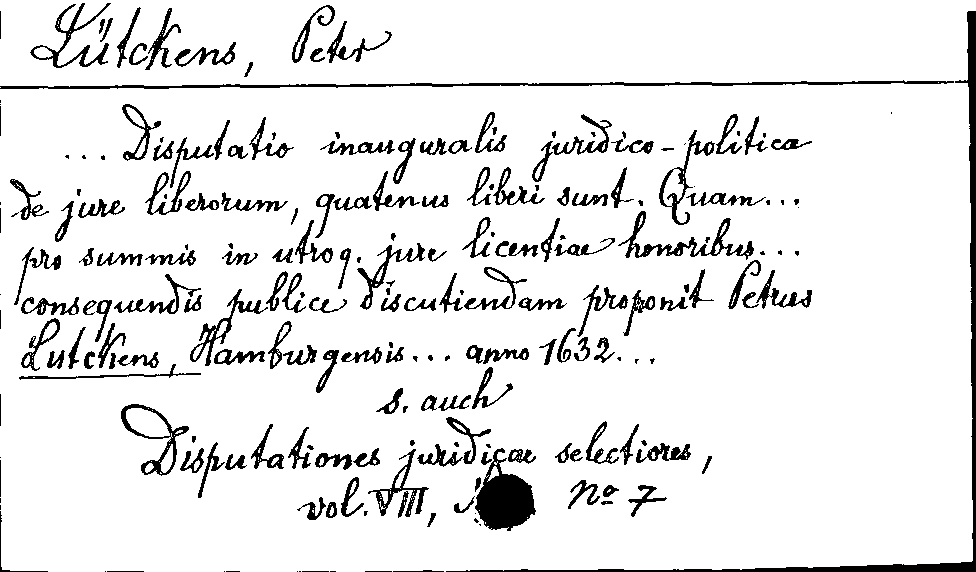 Lütckens, Peter
... Disputatio inauguralis juridico-politica
de jure liberorum, quatenus liberi sunt. Quam...
pro summis in utroq. jure licentiae honoribus...
consequendis publice discutiendam proponit Petrus
Lutckens, Hamburgensis... anno 1632...
s. auch
Disputationes juridicae selectiores,
vol. VIII, No 7